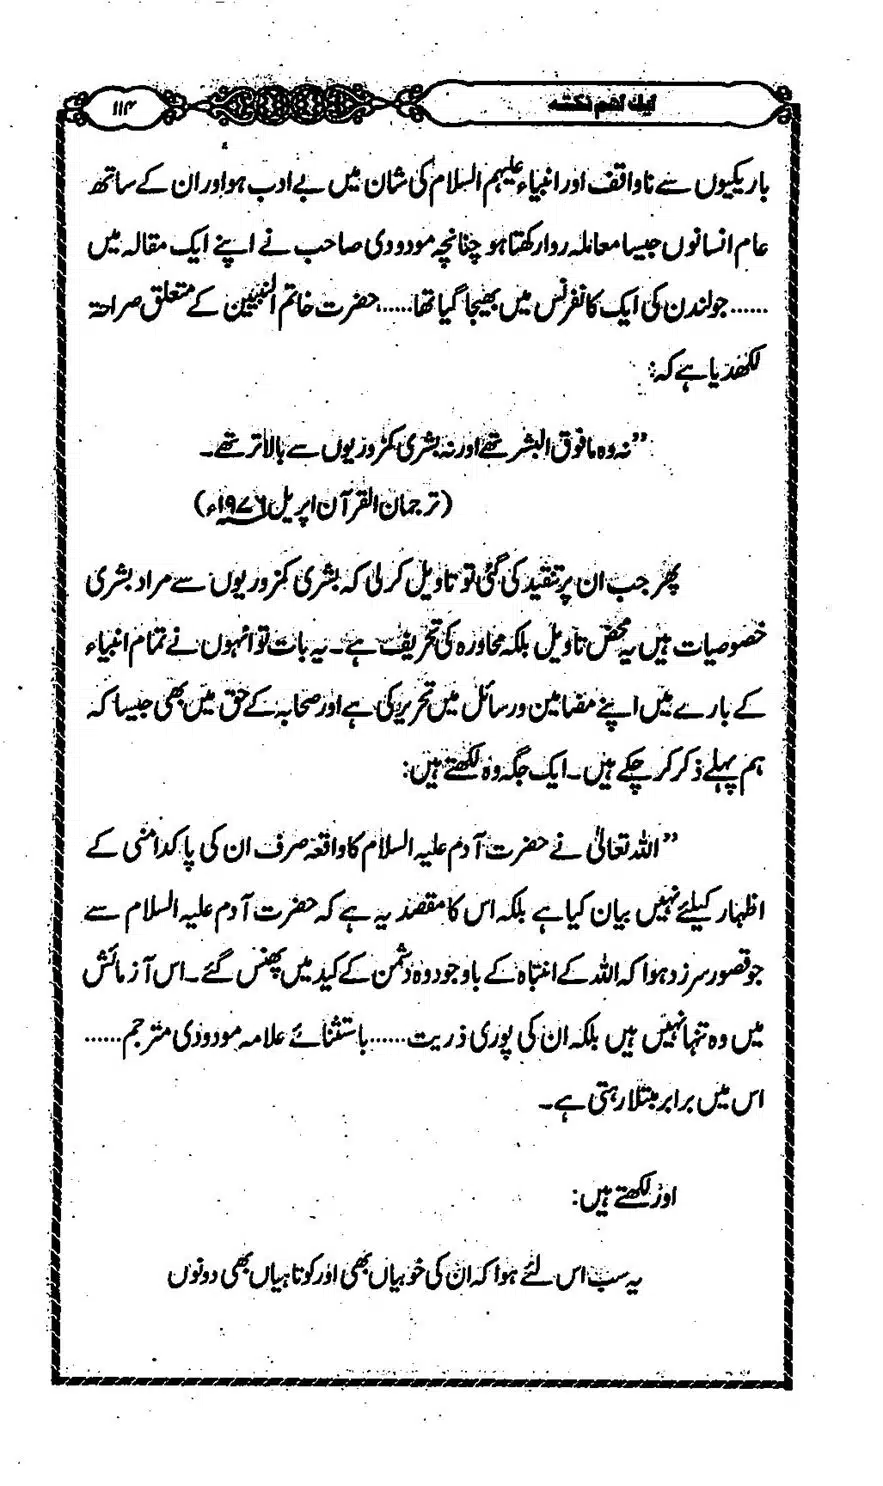 ایک اہم نکتہ
۱۱۴
باریکیوں سے ناواقف اور انبیاء علیہم السلام کی شان میں بے ادب ہو اور ان کے ساتھ
عام انسانوں جیسا معاملہ روا رکھتا ہو چنانچہ مودودی صاحب نے اپنے ایک مقالہ میں
......جو لندن کی ایک کانفرنس میں بھیجا گیا تھا......، حضرت خاتم النبیین کے متعلق صراحۃ
لکھدیا ہے کہ:
”نہ وہ مافوق البشر تھے اور نہ بشری کمزوریوں سے بالاتر تھے۔
(ترجمان القرآن اپریل ۱۹۷۶ء)
پھر جب ان پر تنقید کی گئی تو تاویل کرلی کہ بشری کمزوریوں سے مراد بشری
خصوصیات ہیں یہ محض تاویل بلکہ محاورہ کی تحریف ہے۔ یہ بات تو انہوں نے تمام انبیاء
کے بارے میں اپنے مضامین و رسائل میں تحریر کی ہے اور صحابہ کے حق میں بھی جیسا کہ
ہم پہلے ذکر کر چکے ہیں۔ ایک جگہ وہ لکھتے ہیں:
”اللہ تعالیٰ نے حضرت آدم علیہ السلام کا واقعہ صرف ان کی پاکدامنی کے
اظہار کیلئے نہیں بیان کیا ہے بلکہ اس کا مقصد یہ ہے کہ حضرت آدم علیہ السلام سے
جو قصور سرزد ہوا کہ اللہ کے انتباہ کے باوجود وہ دشمن کے کید میں پھنس گئے۔ اس آزمائش
میں وہ تنہا نہیں ہیں بلکہ ان کی پوری ذریت......باستثنائے علامہ مودودی مترجم......
اس میں برابر مبتلا رہتی ہے۔
اور لکھتے ہیں:
یہ سب اس لئے ہوا کہ ان کی خوبیاں بھی اور کوتاہیاں بھی دونوں